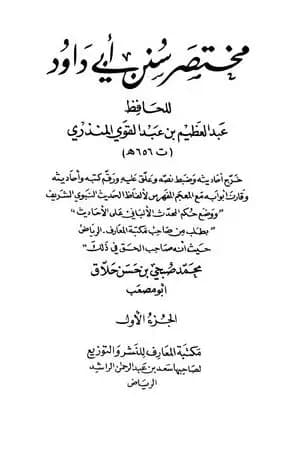 مختصر سنن أبي داود
للحافظ
عبد العظيم بن عبد القوي المنذري
(ت ٦٥٦ هـ)
خرج أحاديثه وضبط نصه وعلق عليه ورقم كتبه وأحاديثه
وقارن أبوابه مع المعجم المفهرس لألفاظ الحديث النبوي الشريف
"ووضع حكم المحدث الألباني على الأحاديث"
"بطلب من صاحب مكتبة المعارف. الرياض
حيث أنه صاحب الحق في ذلك"
محمد صبحي بن حسن حلاق
أبو مصعب
الجزء الأول
مكتبة المعارف للنشر والتوزيع
لصاحبها سعد بن عبد الرحمن الراشد
الرياض